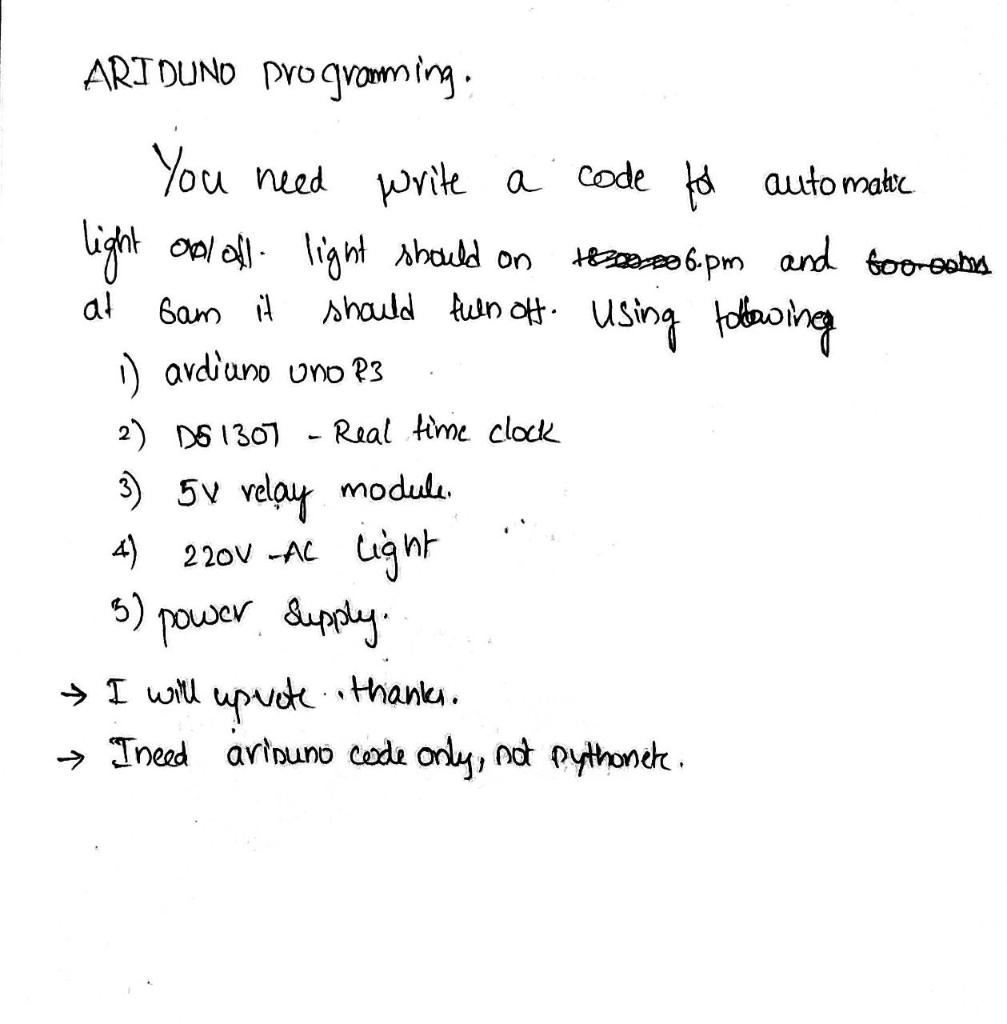 ARIDUNO programming.
You need write a code for automatic
light on/off. light should on 6.pm and
at 6am it should turn off. Using following
1) ardiuno UNO R3
2) DS 1307 - Real time clock
3) 5V relay module.
4) 220V -AC Light
5) power supply.
→ I will upvote . thanks.
→ I need ariduno code only, not python etc.